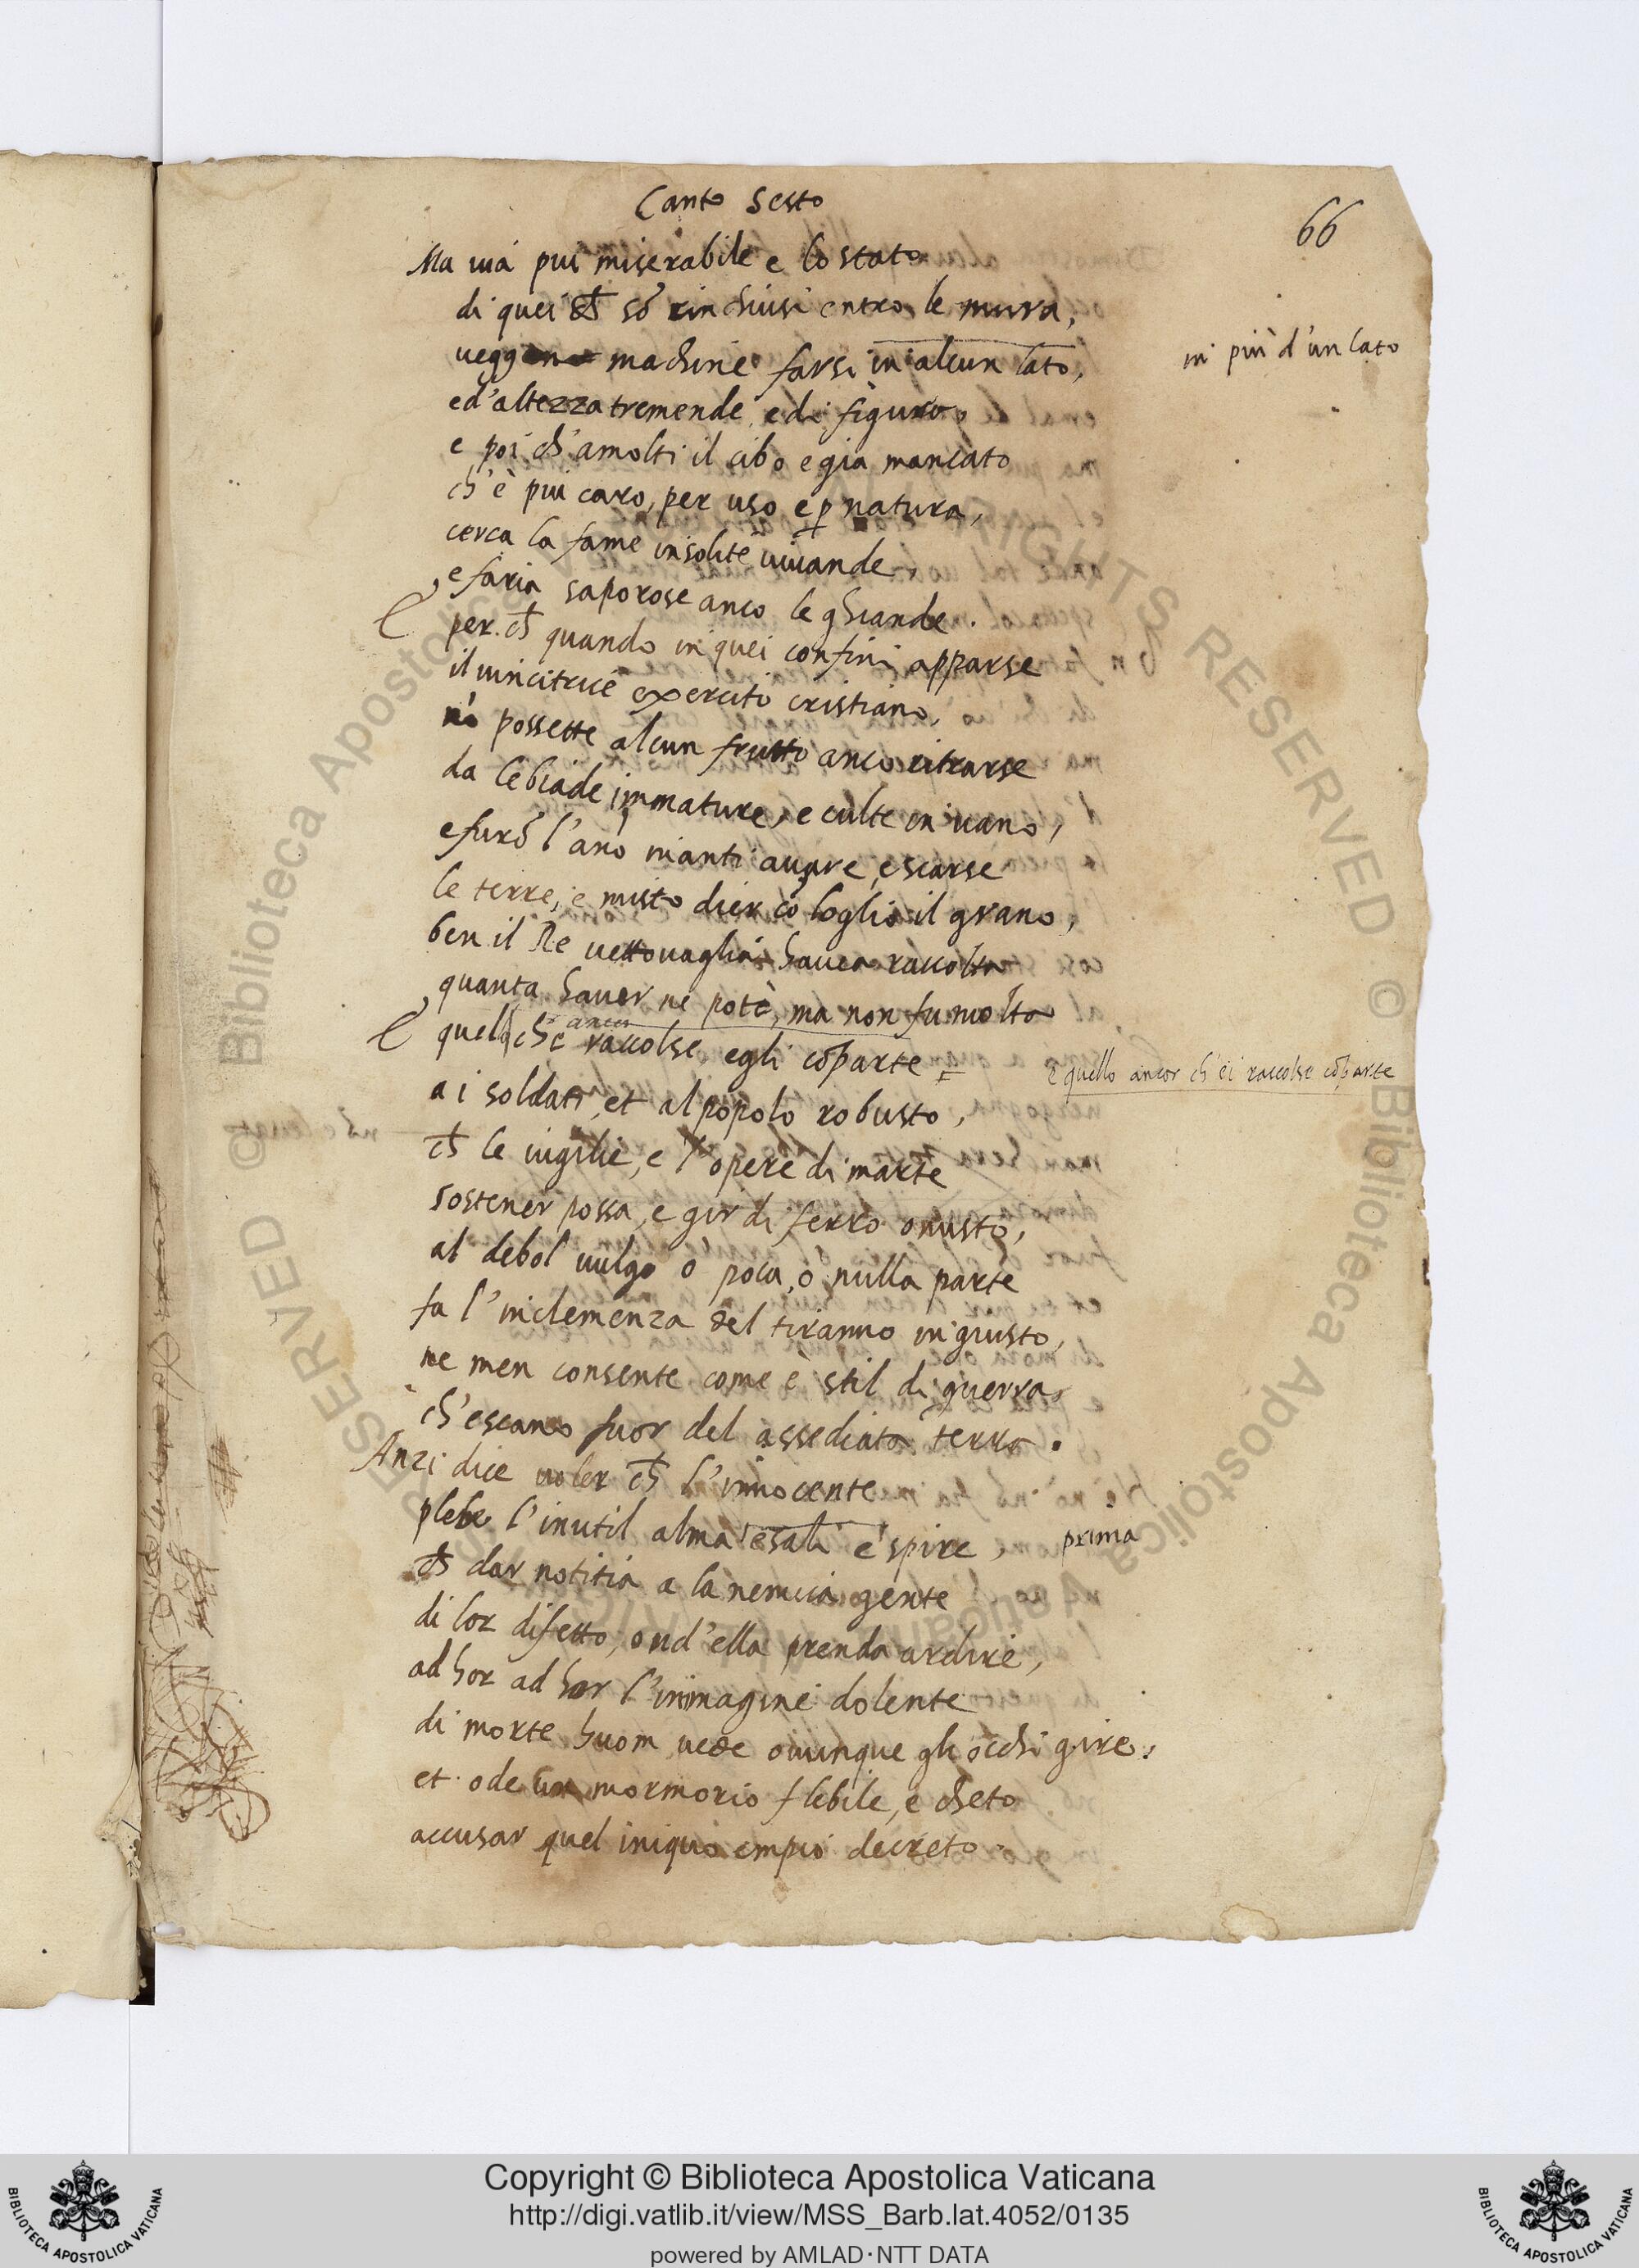 Canto Sesto
66
Ma uia piu miserabile e lo stato
di quei ch̄ sõ rinchiusi entro le mura,
machine farsi in alcun lato,
in piu d'un lato
ed'altezza tremende, e di figura,
e poi ch'a molti il cibo e gia mancato
ch'è piu caro, per uso e ꝑ natura,
cerca la fame insolite uiuande,
e faria saporose anco le ghiande.
per ch̄ quando in quei confini apparse
il uincitrice exercito cristiano,
nõ possette alcun frutto anco ritrarse
da le biade immature, e culte in uano,
e furõ l'ãno inanti auare, e scarse
le terre, e misto dier cõ loglio il grano,
ben il Re uettouaglia hauea raccolta
quanta hauer ne potè, ma non fu molta
E quel che ancor raccolse egli cõparte
e quello ancor ch'ei raccolse cõparte
a i soldati, et al popolo robusto,
ch̄ le uigilie, e l'opere di marte
sostener possa, e gir di ferro onusto,
al debol uulgo ò poca, ò nulla parte
fa l'inclemenza del tiranno ingiusto,
ne men consente come è stil di guerra,
ch'escano fuor del assediata terra.
Anzi dice uoler ch̄ l'innocente
plebe l'inutil alma esali e spire,
prima
ch̄ dar notitia a la nemica gente
di lor difetto, ond'ella prenda ardire,
ad hor ad hor l'immagine dolente
di morte huom uede ouunque gli occhi gire,
et ode un mormorio flebile, e cheto
accusar quel iniquo empio decreto
Copyright © Biblioteca Apostolica Vaticana
http://digi.vatlib.it/view/MSS_Barb.lat.4052/0135
powered by AMLAD·NTT DATA
BIBLIOTECA APOSTOLICA VATICANA
BIBLIOTECA APOSTOLICA VATICANA